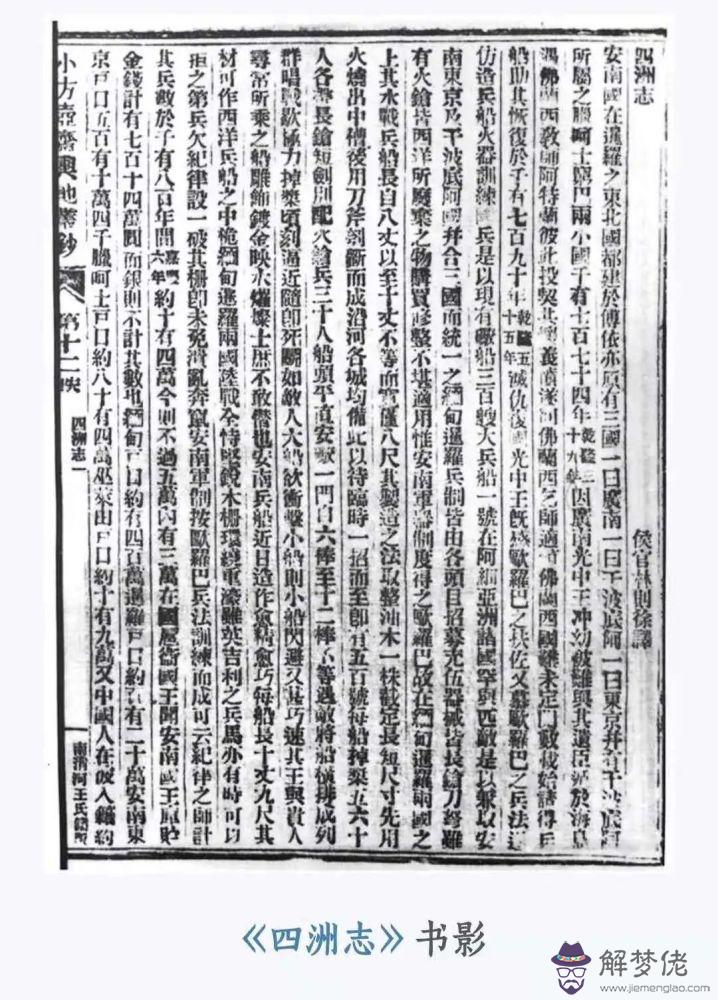 四洲志 侯官林則徐譯
安南國在暹羅之東北國都建於傅依亦原有三國一曰廣南一曰干波底阿一曰東京并有干波底阿
所屬之臘呵士巴兩小國千有七百七十四年乾隆三十九年因廣南光中王冲幼被難與其遺臣於海島
遇佛蘭西教師阿特蘭彼此投契共義憤遂向佛蘭西乞師適佛蘭西國難未定數載始請得兵
船助其恢復於千有七百九十年乾隆五十五年滅仇復國光中王既感歐羅巴之兵佐又慕歐羅巴之兵法
仿造兵船火器訓練國兵是以現有戰船三百艘大兵船一號在阿細亞洲諸國罕與匹敵是以兼以安
南東京及干波底阿國并合三國而統一之緬甸暹羅兵制皆由各頭目招募充伍器械皆長鎗刀弩雖
有火鎗皆西洋所廢棄之物購買修整不堪適用惟安南軍器制度得之歐羅巴故在緬甸暹羅兩國之
上其水戰兵船長自八丈以至十丈不等而寬僅八尺其製造之法取整油木一株截定長短尺寸先用
火燒出中槽後用刀斧剖斷而成沿河各城均備此以待臨時一招而至即有五百號每船掉槳五六十
人各帶長鎗短劍別配火鎗兵三十人船頭平直安礮一門自六棒至十二棒不等遇敵將船橫排成列
群唱戰歌極力掉槳頃刻逼近隨即死鬭如敵人大船欲衝擊小船則小船閃避又甚巧速其王與貴人
尋常所乘之船雕飾鍍金映水燿燦士庶不敢僭也安南兵船近日造作愈精愈巧每船長十丈九尺其
材可作西洋兵船之中桅緬甸暹羅兩國陸戰全恃堅銳木柵環繞重濠雖英吉利之兵馬亦有時可以
拒之第兵欠紀律設一破其柵即未免潰亂奔竄安南軍制按歐羅巴兵法訓練而成可云紀律之師計
其兵數於千有八百年間嘉慶六年約十有四萬今則不過五萬內有三萬在國屬衛國王聞安南國王庫貯
金錢計有七百十四萬圓而銀則不計其數也緬甸戶口約有四百萬暹羅戶口約有二十萬安南東
京戶口五百有十萬四千臘呵士戶口約八十有四萬巫來由戶口約十有九萬又中國人在彼入籍約
小方壺齋輿地叢鈔 第十二帙 四洲志一 南清河王氏鑄版
《四洲志》书影
解梦佬
www.jiemenglao.com